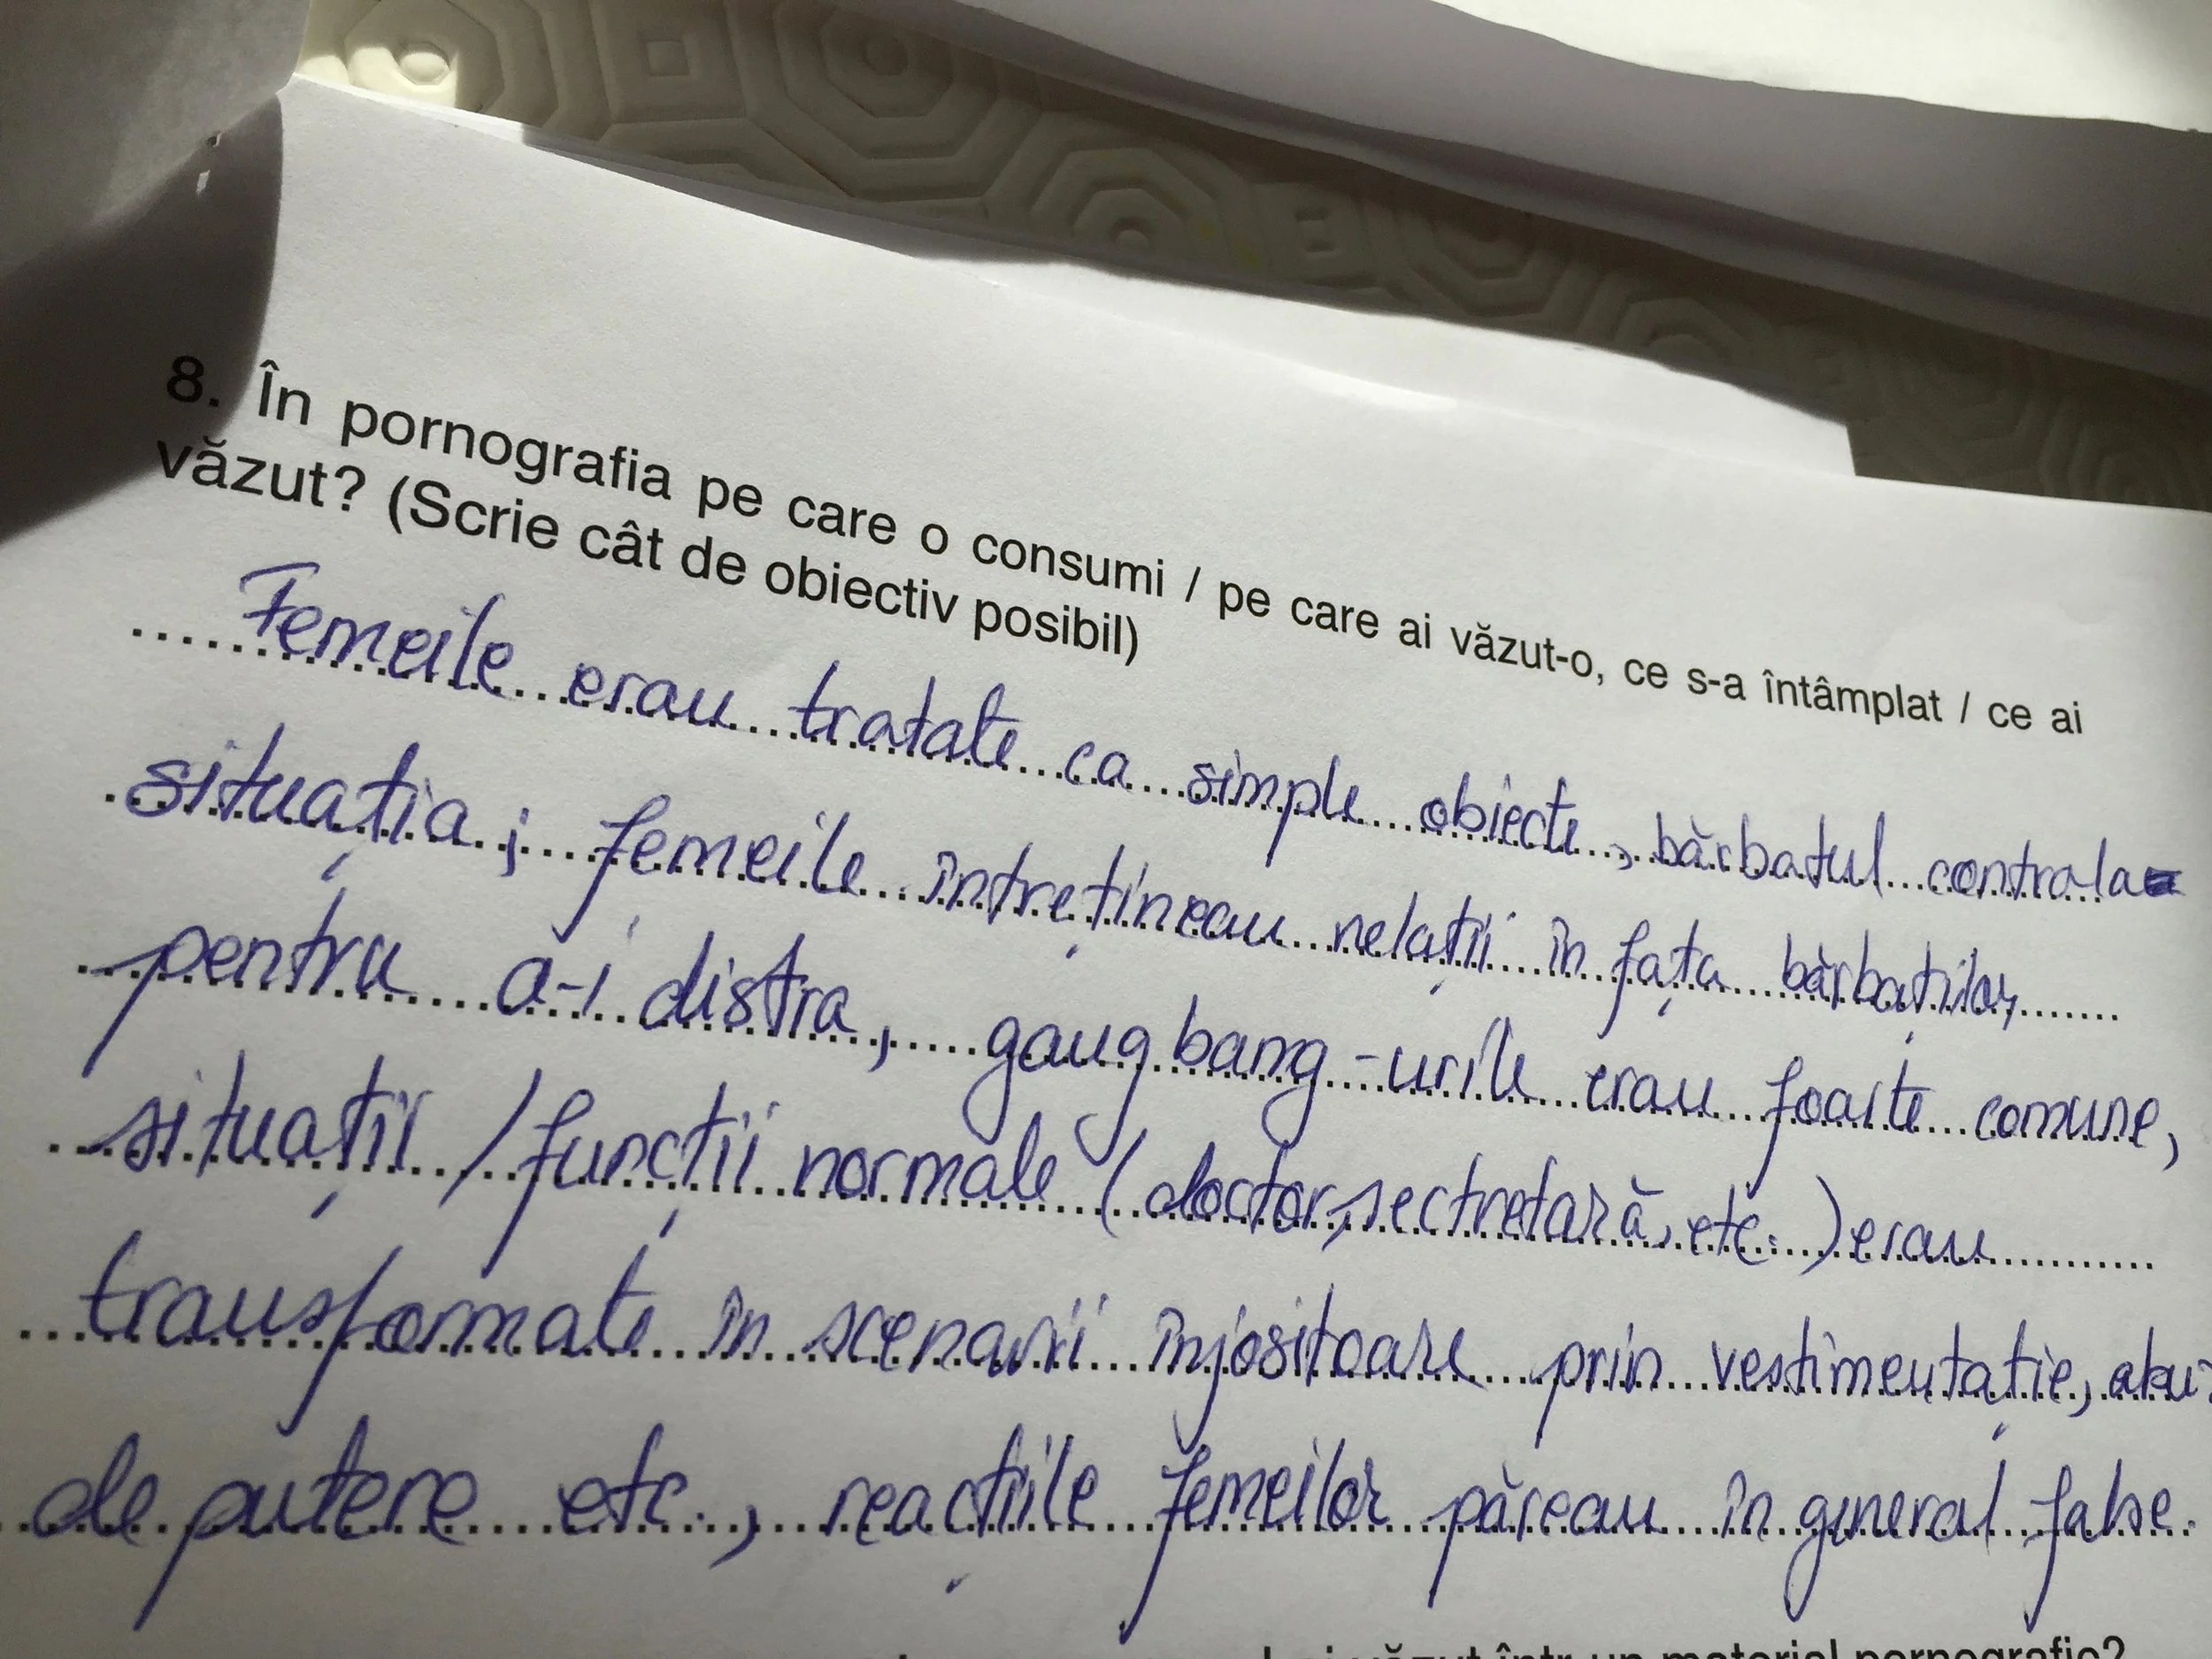 8. În pornografia pe care o consumi / pe care ai văzut-o, ce s-a întâmplat / ce ai
văzut? (Scrie cât de obiectiv posibil)
Femeile erau tratate ca simple obiecte, bărbatul controla
situația; femeile întrețineau relații în fața bărbaților,
pentru a-i distra, gang bang-urile erau foarte comune,
situații / funcții normale (doctor, sectretară, etc.) erau
transformate în scenarii înjositoare prin vestimentație, abuz
de putere etc., reacțiile femeilor păreau în general false.
ai văzut într-un material pornografic?